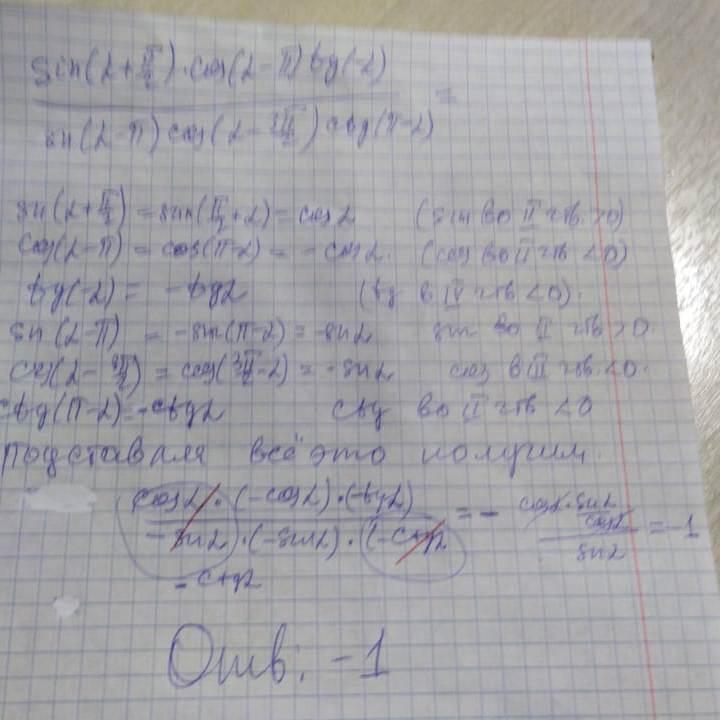 sin(α+π/2)·cos(α-π)tg(-α)
=
sin(α-π)cos(α-3π/2)ctg(π-α)
sin(α+π/2)=sin(π/2+α)=cosα (sin во II четв. >0)
cos(α-π)=cos(π-α)=-cosα. (cos во II четв <0)
tg(-α)= -tgα (tg в IV четв <0).
sin(α-π) = -sin(π-α)=-sinα sin во II четв >0.
cos(α-3π/2)=cos(3π/2-α)=-sinα cos в III четв. <0.
ctg(π-α)=-ctgα ctg во II четв <0
подставляя всё это получим.
cosα·(-cosα)·(-tgα) cosα·sinα/cosα
= - =-1
-sinα)·(-sinα)·(-ctgα sinα
-ctgα
Отв: -1